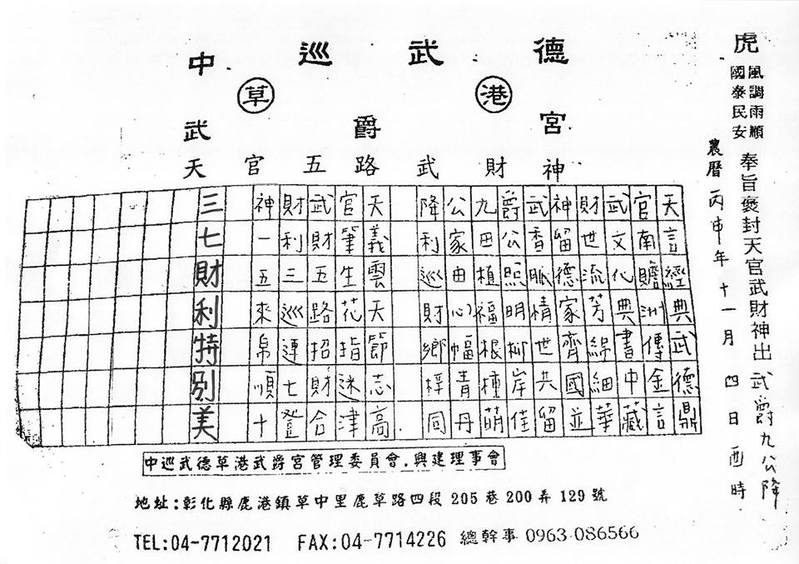 中巡武德
草港
武爵宮
天官五路武財神
虎
風調雨順
國泰民安
奉旨褒封天官武財神出武爵九公降
農曆丙申年十一月四日酉時
天言經典武德鼎
官南贍洲傳金言
武文化典書中藏
財世流芳綿細華
神留德家齊國並
武香脈情世共留
爵公照明柳岸佳
九田植福根種萌
公家由心幅青丹
降利巡財鄉梓同
天義雲天節志高
官筆生花指迷津
武財五路招財合
財利三巡連七登
神一五來帛順十
三七財利特別美
中巡武德草港武爵宮管理委員會.興建理事會
地址:彰化縣鹿港鎮草中里鹿草路四段205巷200弄129號
TEL:04-7712021 FAX:04-7714226 總幹事 0963-086566